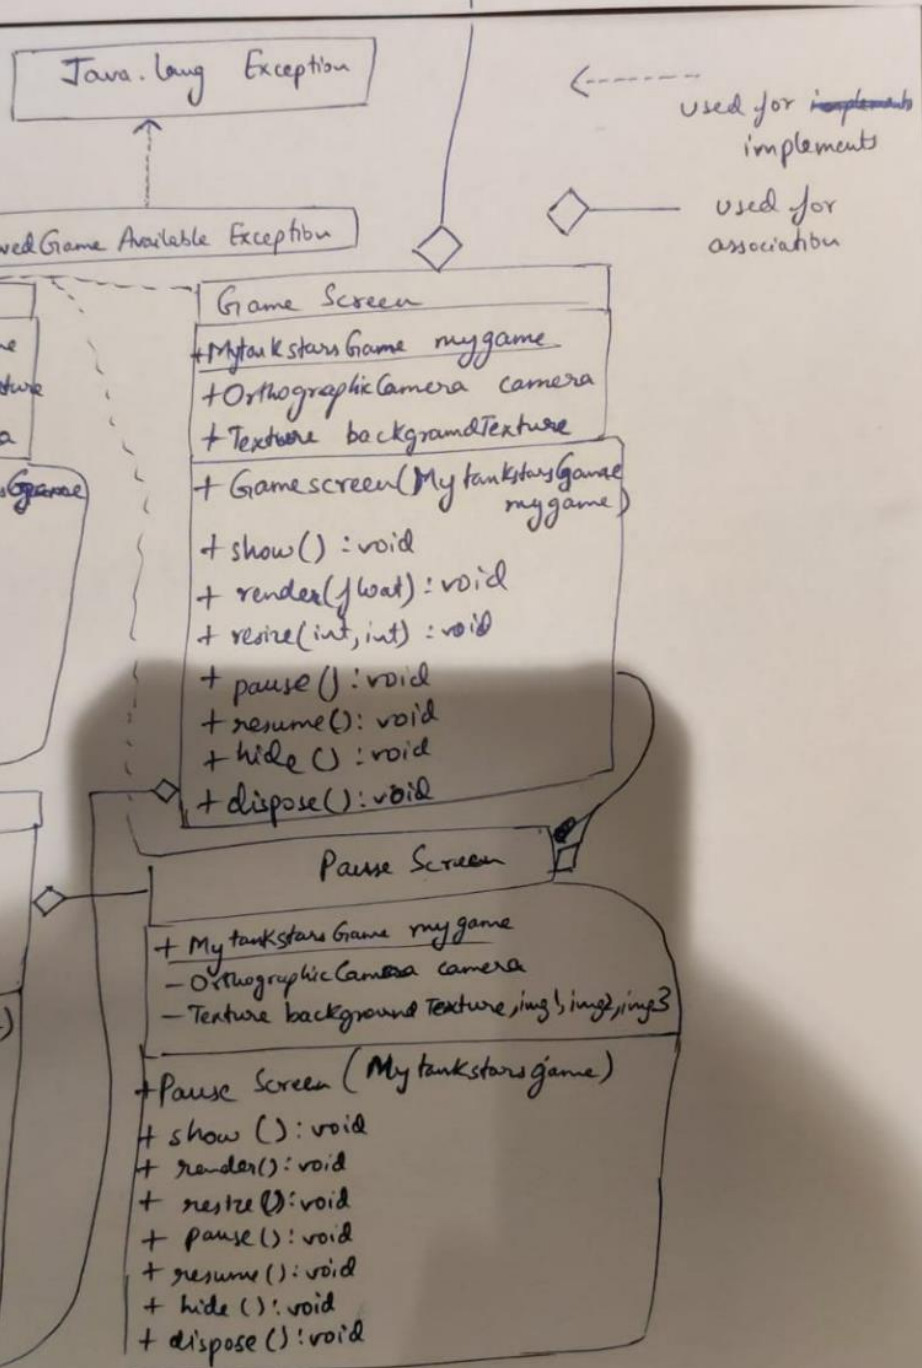 Java.lang Exception
used for implements
implements
used for
association
ved Game Available Exception
Game Screen
+MytankstarsGame mygame
+OrthographicCamera camera
+Texture backgroundTexture
+ Gamescreen(MytankstarsGame
mygame)
+ show() : void
+ render(float) : void
+ resize(int, int) : void
+ pause() : void
+ resume() : void
+ hide () : void
+ dispose() : void
Pause Screen
+ MytankstarsGame mygame
- OrthographicCamera camera
- Texture backgroundTexture, img1, img2, img3
+Pause Screen (Mytankstarsgame)
+ show () : void
+ render() : void
+ resize() : void
+ pause() : void
+ resume () : void
+ hide () : void
+ dispose () : void